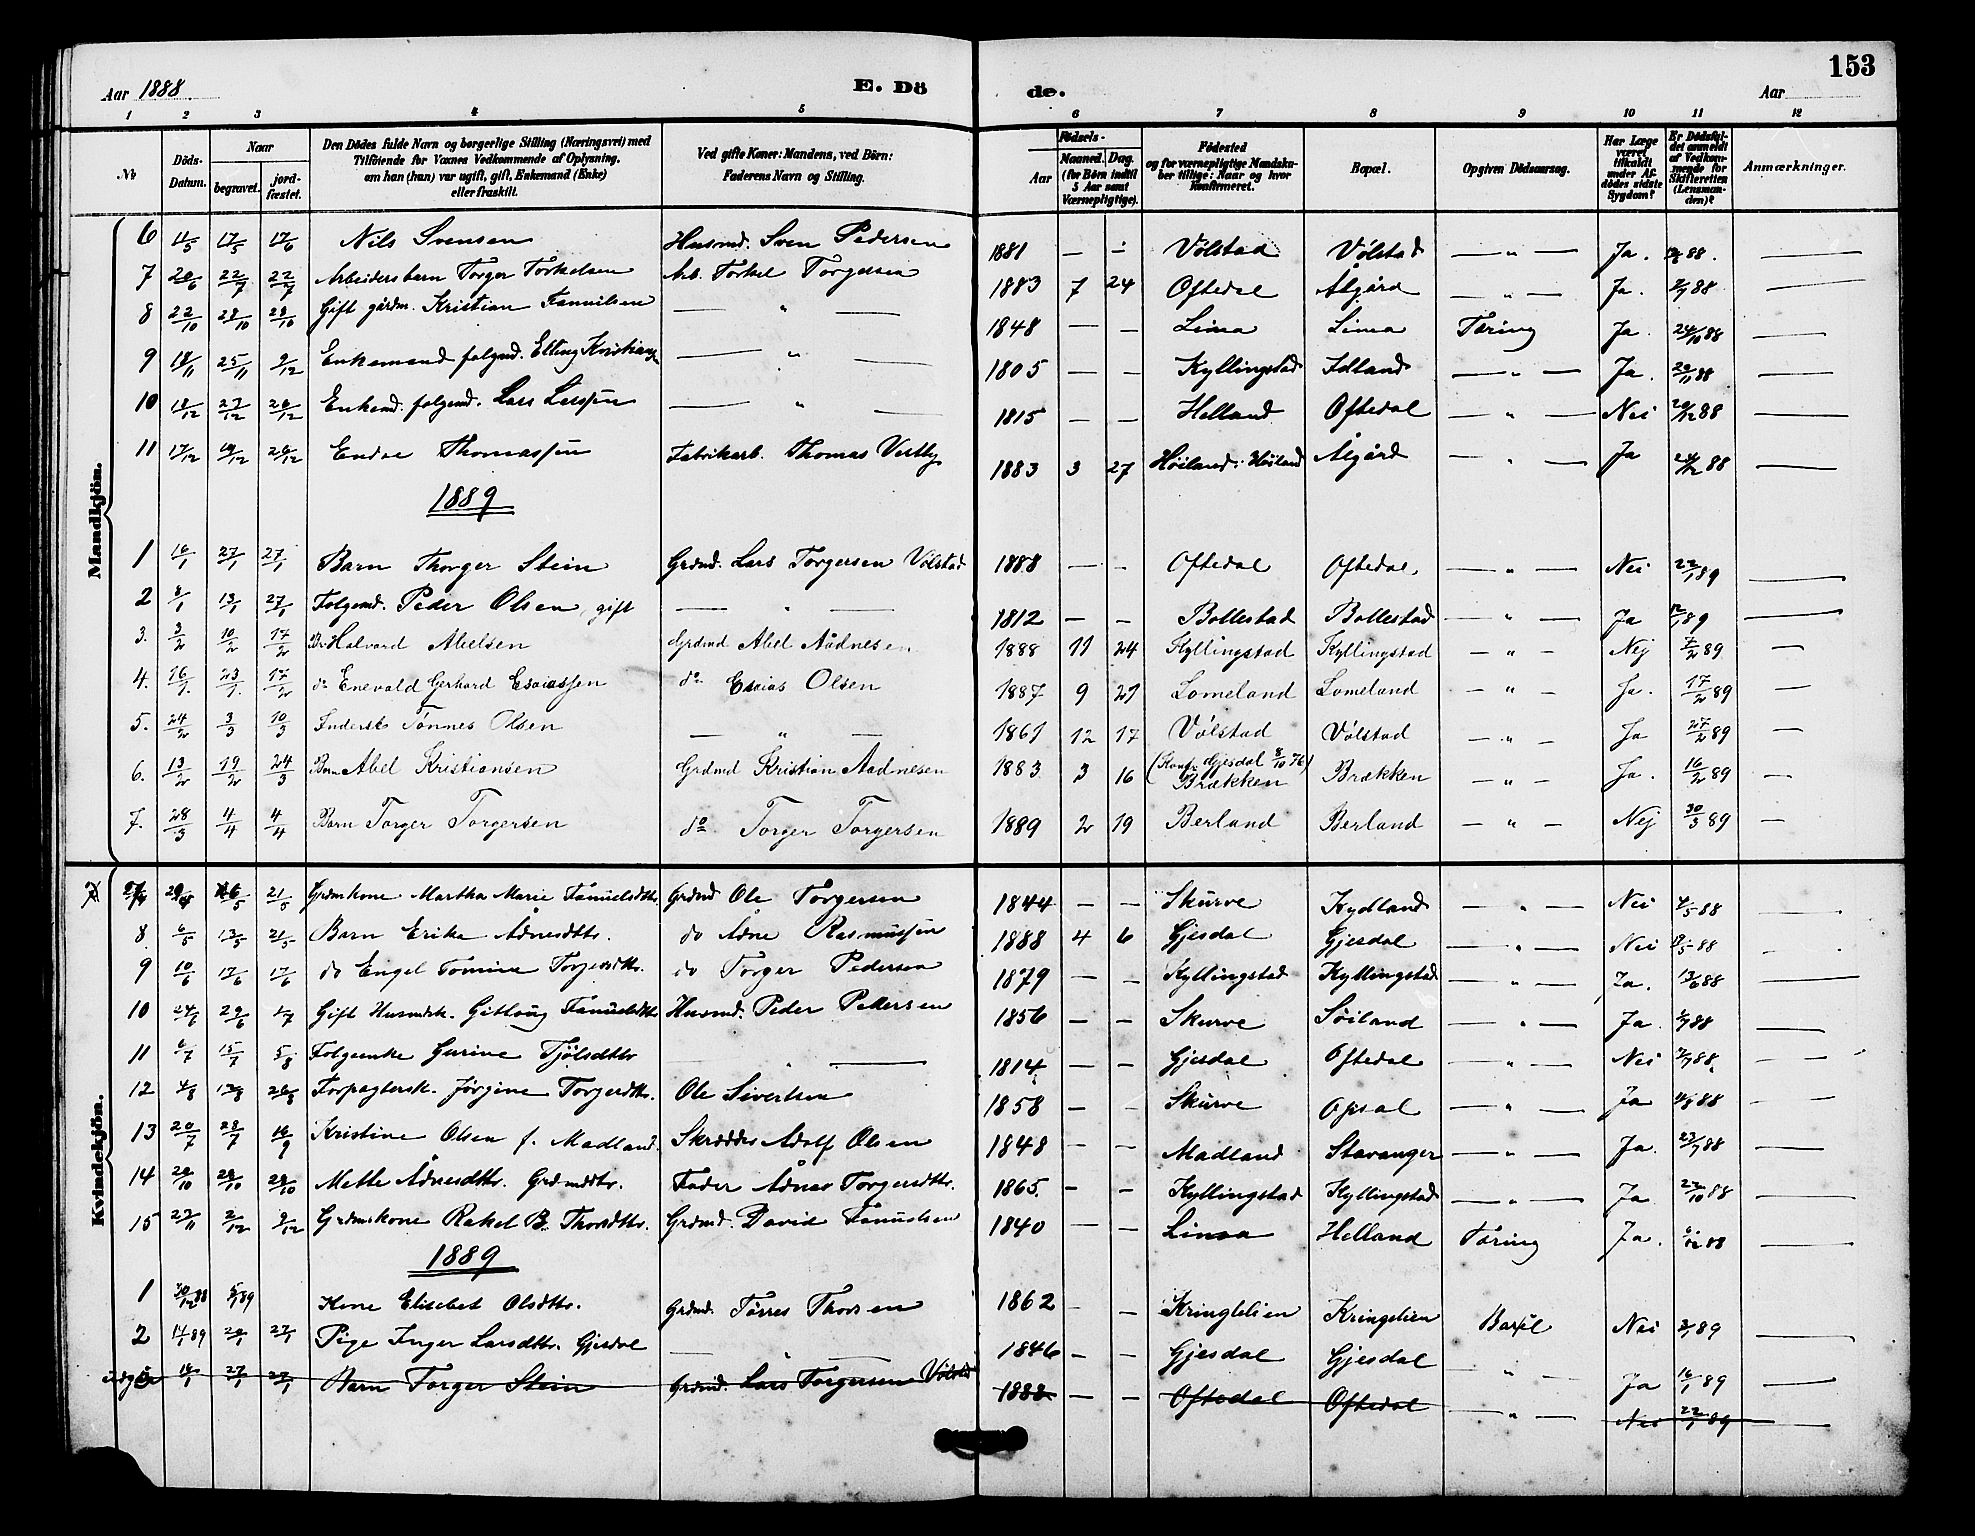 153
Aar 1888 E. Dö de. Aar
1 2 3 4 5 6 7 8 9 10 11 12
No Döds-Datum. Naar begravet. jord-fæstet. Den Dödes fulde Navn og borgerlige Stilling (Næringsvei) med Tilföiende for Voxnes Vedkommende af Oplysning, om han (hun) var ugift, gift, Enkemand (Enke) eller fraskilt. Ved gifte Koner: Mandens, ved Börn: Faderens Navn og Stilling. Födsels- Aar Maaned. Dag. (for Börn indtil 5 Aar samt Værnepligtige). Födested og for værnepligtige Mandskaber tillige: Naar og hvor Konfirmeret. Bopæl. Opgiven Dödsaarsag. Har Læge været tilkaldt under Afdödes sidste Sygdom? Er Dödsfaldet anmeldt af Vedkommende for Skifteretten (Lensmanden)? Anmærkninger.
Mandkjön.
6 11/5 17/5 17/6 Nils Svensen Husmd. Sven Pedersen 1881 — — Völstad Völstad — " — Ja. 88. —
7 20/6 22/7 22/7 Arbeidersbarn Torger Torkelsen Arb. Torkel Torgersen 1883 7 24 Oftedal Ålgård — " — Ja. 2/7 88 —
8 22/10 28/10 28/10 Gift gårdm. Kristian Fanuilsen — " — 1848 — — Lima Lima Tæring Ja. 24/10 88 —
9 18/11 25/11 9/12 Enkemand folgmd. Elling Kristians — " — 1805 — — Kyllingstad Idland — " — Ja. 20/11 88 —
10 18/12 27/12 26/12 Enkemd. folgemd. Lars Larssen — " — 1815 — — Helland Oftedal — " — Nei 20/12 88 —
11 17/12 19/12 26/12 Endre Thomassen Fabrikarb. Thomas Vestly 1883 3 27 Höiland i Höiland Ålgård — " — Ja 24/12 88 —
1889
1 16/1 27/1 27/1 Barn Thorger Stein Grdmd. Lars Torgersen Völstad 1888 — — Oftedal Oftedal — " — Nei 22/1 89 —
2 8/1 13/1 27/1 Folgemd. Peder Olsen, gift — " — 1812 — — Bollestad Bollestad — " — Ja 12/1 89 —
3. 3/2 10/2 17/2 Bn Halvard Abelsen Grdmd Abel Aadnesen 1888 11 24 Kyllingstad Kyllingstad — " — Nej 7/2 89 —
4. 16/1. 23/1. 17/2 do Enevald Gerhard Esaiassen do Esaias Olsen 1887 9 27 Lomeland Lomeland — " — Ja. 17/2 89 —
5. 24/2 3/3 10/3 Inderst Tönnes Olsen — " — 1861 12 17 Völstad Völstad — " — Ja 27/2 89 —
(Konf. Gjesdal 8/10 76)
6. 13/2 19/2 24/3 Barn Abel Kristiansen Grdmd Kristian Aadnesen 1883 3 16 Brækken Brækken — " — Ja. 16/2 89 —
7. 28/3 4/4 4/4 Barn Torger Torgersen do Torger Torgersen 1889 2 19 Berland Berland — " — Nej 30/3 89 —
Kvindekjön.
7 29/4 6/5 21/5 Grdmkone Martha Marie Fanuelsdttr. Grdmd Ole Torgersen 1844 — — Skurve Kydland — " — Nei 4/5 88 —
8 6/5 13/5 21/5 Barn Erika Ådnesdttr. do Ådne Rasmussen 1888 4 6 Gjesdal Gjesdal — " — Nei 88 —
9 10/6 17/6 17/6 do Engel Tomine Torjersdttr. do Torger Pedersen 1879 — — Kyllingstad Kyllingstad — " — Ja. 13/6 88 —
10 24/6 29/6 1/7 Gift Husmdsk. Gitlaug Fanuelsdttr Husmd. Peder Pedersen 1856 — — Skurve Söiland — " — Ja. 88 —
11 6/7 15/7 5/8 Folgeenke Gurine Tjölsdttr — " — 1814 — — Gjesdal Oftedal — " — Nei 88. —
12 4/8 12/8 26/8 Forpagtersk. Jörgine Torgersdttr. Ole Sivertsen 1858 — — Skurve Opsal — " — Ja 88 —
13 20/7 28/7 16/9 Kristine Olsen f. Madland. Skrædder Adolf Olsen 1848 — — Madland Stavanger — " — Ja. 23/7 88 —
14 20/10 28/10 28/10 Mette Ådnesdttr. Grdmdttr. Fader Ådner Torgersdttr. 1865. — — Kyllingstad Kyllingstad — " — Ja 23/10 88 —
15 27/11 2/12 9/12 Grdmkone Rakel B. Thorsdttr. Grdmd. David Fanuelsen 1840 — — Limaa Helland Tæring Ja. 6/12 88 —
1889
1 30/12 88 5/1 89 Kone Elisebet Olsdttr. Grdmd. Tørres Thorsen 1862 — — Kringlelien Kringelien Barsel Nei 2/1 89 —
2 14/1 89 20/1 27/1 Pige Inger Larsdttr. Gjesdal — " — 1846 — — Gjesdal Gjesdal " — Ja 16/1 89 —
udgår 16/1 27/1 27/1 Barn Torger Stein Grdmd. Lars Torgersen Völstad 1888 — — Oftedal Oftedal — " — Nei 22/1 89 —